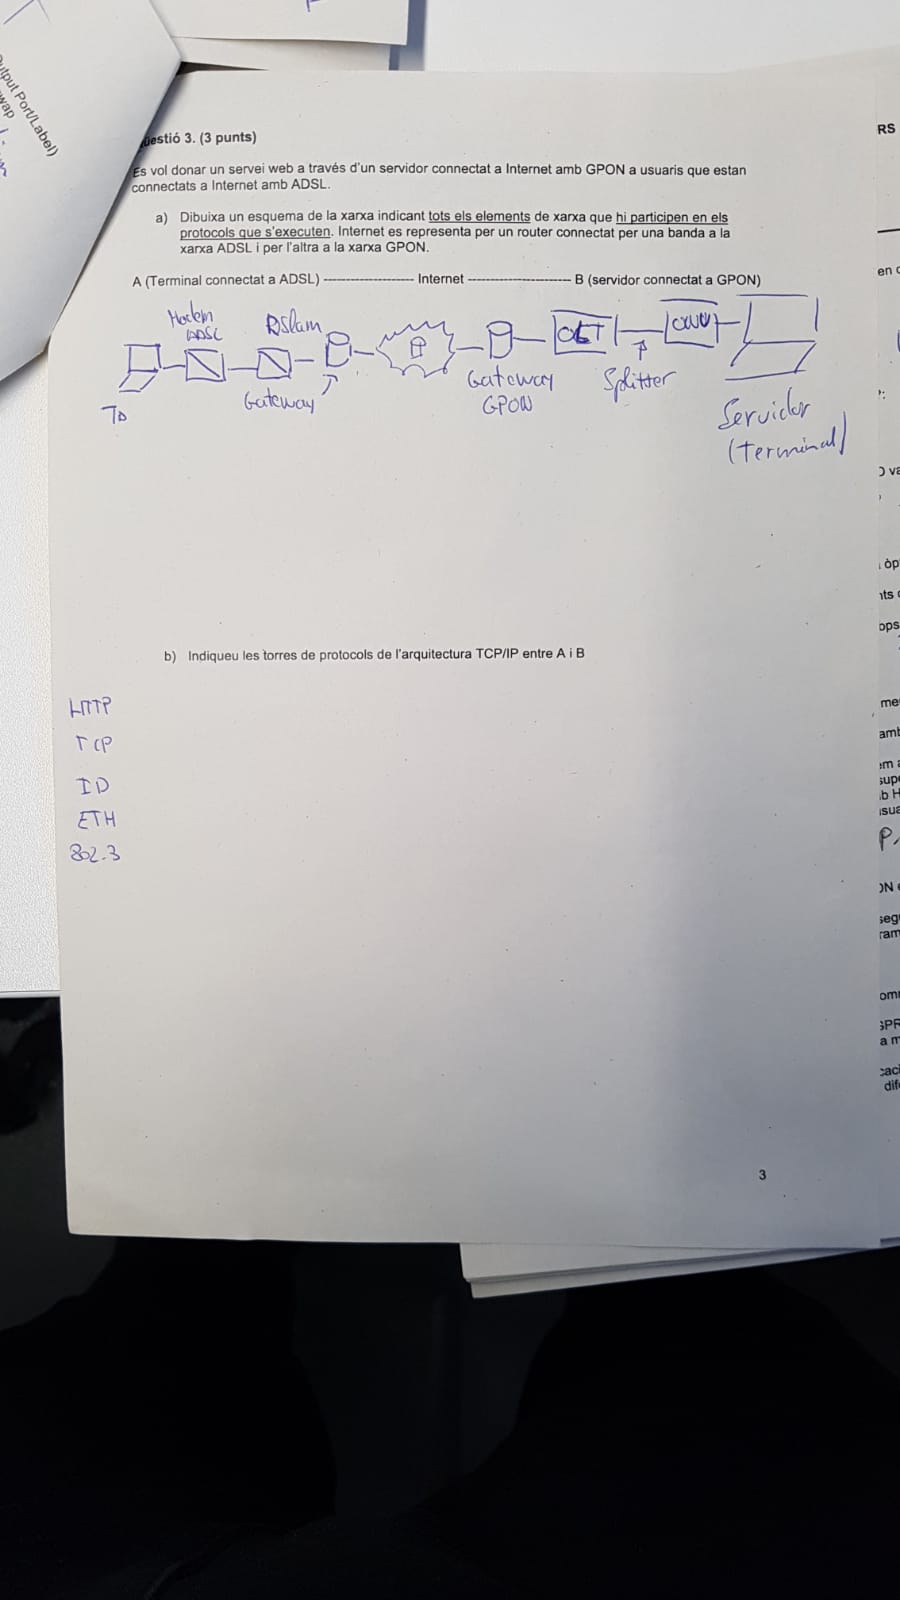 Output Port/Label)
wap
RS
Qüestió 3. (3 punts)
Es vol donar un servei web a través d'un servidor connectat a Internet amb GPON a usuaris que estan
connectats a Internet amb ADSL.
a) Dibuixa un esquema de la xarxa indicant tots els elements de xarxa que hi participen en els
protocols que s'executen. Internet es representa per un router connectat per una banda a la
xarxa ADSL i per l'altra a la xarxa GPON.
en
A (Terminal connectat a ADSL) ---------------------- Internet ------------------------- B (servidor connectat a GPON)
Modem
ADSL
DSlam
OLT
ONU
Gateway
Gateway
GPON
Splitter
Servidor
(Terminal)
b) Indiqueu les torres de protocols de l'arquitectura TCP/IP entre A i B
HTTP
TCP
ETH
802.3
3